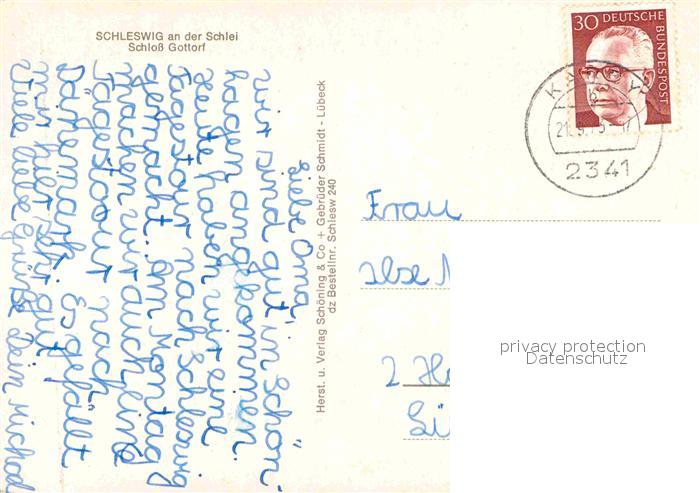 SCHLESWIG an der Schlei
Schloß Gottorf
Liebe Oma,
wir sind gut in Schön-
hagen angekommen.
Heute haben wir eine
Tagestour nach Schleswig
gemacht. Am Montag
machen wir auch eine
Tagestour nach
Dänemark. Es gefällt
mir hier sehr gut.
Viele liebe Grüße Dein Michael
Herst. u. Verlag Schöning & Co + Gebrüder Schmidt - Lübeck
dz Bestellnr. Schlesw 240
30 DEUTSCHE
BUNDESPOST
2341
Frau
Ilse
2 H
privacy protection
Datenschutz